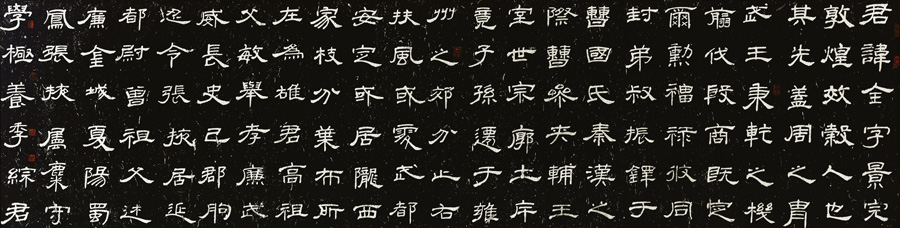 君諱全字景完
敦煌效穀人也
其先蓋周之胄
武王秉乾之機
翦伐殷商既定
爾勳福祿攸同
封弟叔振鐸于
曹國氏秦漢之
際曹參夾輔王
室世宗廓土斥
竟子孫遷于雍
州之郊分止右
扶風或處武都
安定或居隴西
家枝分葉布所
在為雄君高祖
父敏舉孝廉武
威長史巴郡朐
忍令張掖居延
都尉曾祖父述
廉金城夏陽蜀
鳳張掖屬麋守
學極養季綜君